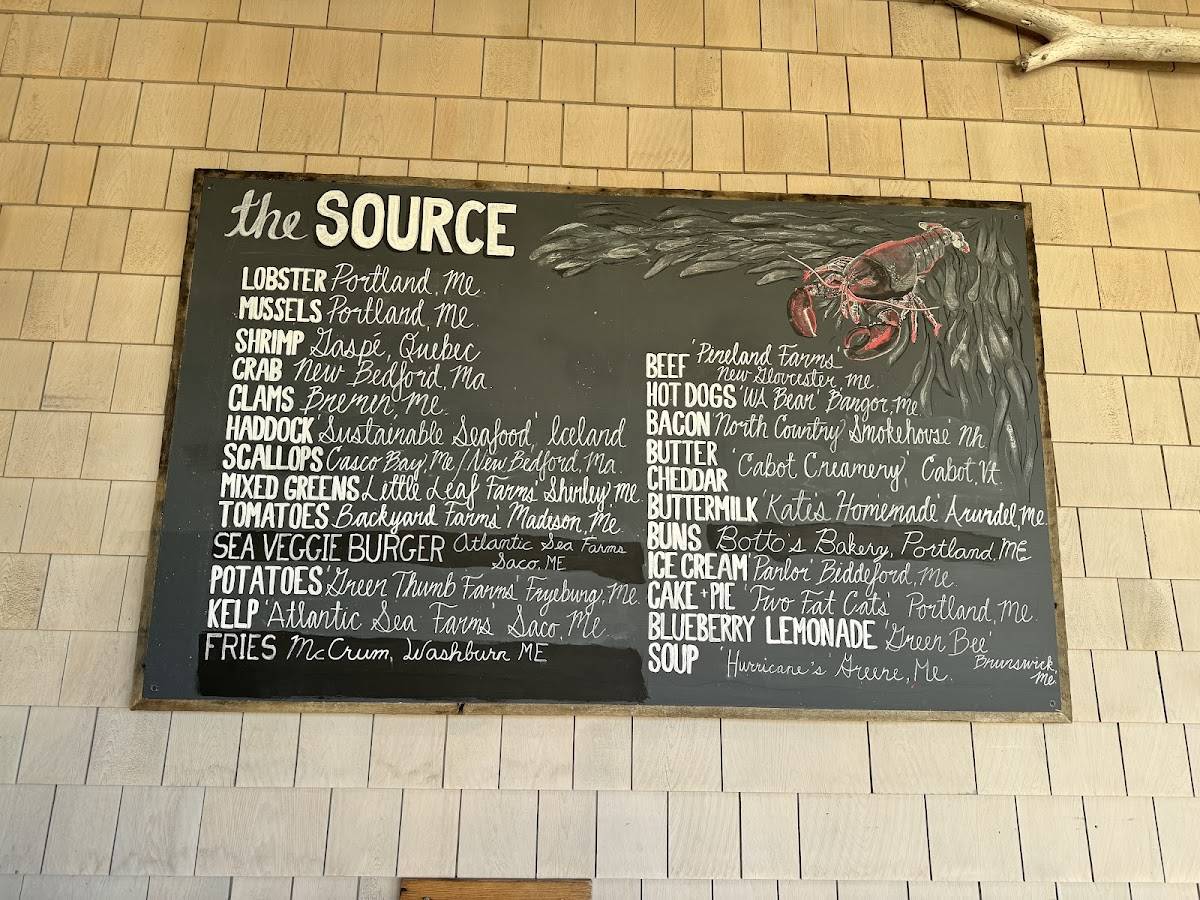 the SOURCE
LOBSTER Portland, Me.
MUSSELS Portland, Me.
SHRIMP Gaspe, Quebec
CRAB New Bedford, Ma.
CLAMS Bremen, Me.
HADDOCK Sustainable Seafood, Iceland
SCALLOPS Casco Bay, Me/New Bedford, Ma.
MIXED GREENS Little Leaf Farms' Shirley, Me.
TOMATOES Backyard Farms' Madison, Me.
SEA VEGGIE BURGER Atlantic Sea Farms
Saco, ME
POTATOES 'Green Thumb Farms' Fryeburg, Me.
KELP 'Atlantic Sea Farms' Saco, Me.
FRIES McCrum, Washburn ME
BEEF 'Pineland Farms'
New Glovester, me.
HOT DOGS 'WA Bean' Bangor, Me.
BACON North Country Smokehouse' Nh
BUTTER
CHEDDAR 'Cabot Creamery', Cabot, Vt.
BUTTERMILK 'Kate's Homemade' Arundel, Me.
BUNS Botto's Bakery, Portland, ME
ICE CREAM 'Parlor' Biddeford, Me.
CAKE + PIE 'Two Fat Cats' Portland, Me.
BLUEBERRY LEMONADE 'Green Bee'
Brunswick, Me.
SOUP 'Hurricane's Greene, Me.